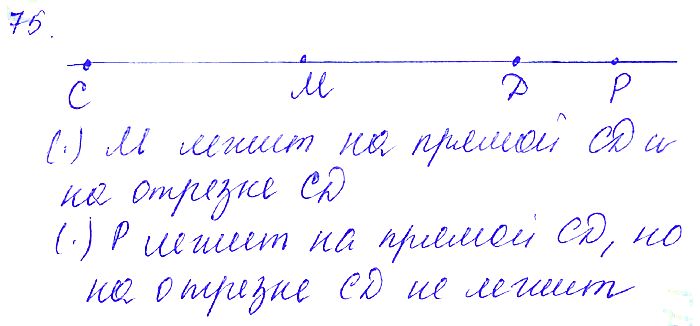 75.
С М D Р
(.) М лежит на прямой CD и
на отрезке CD
(.) Р лежит на прямой CD, но
на отрезке CD не лежит